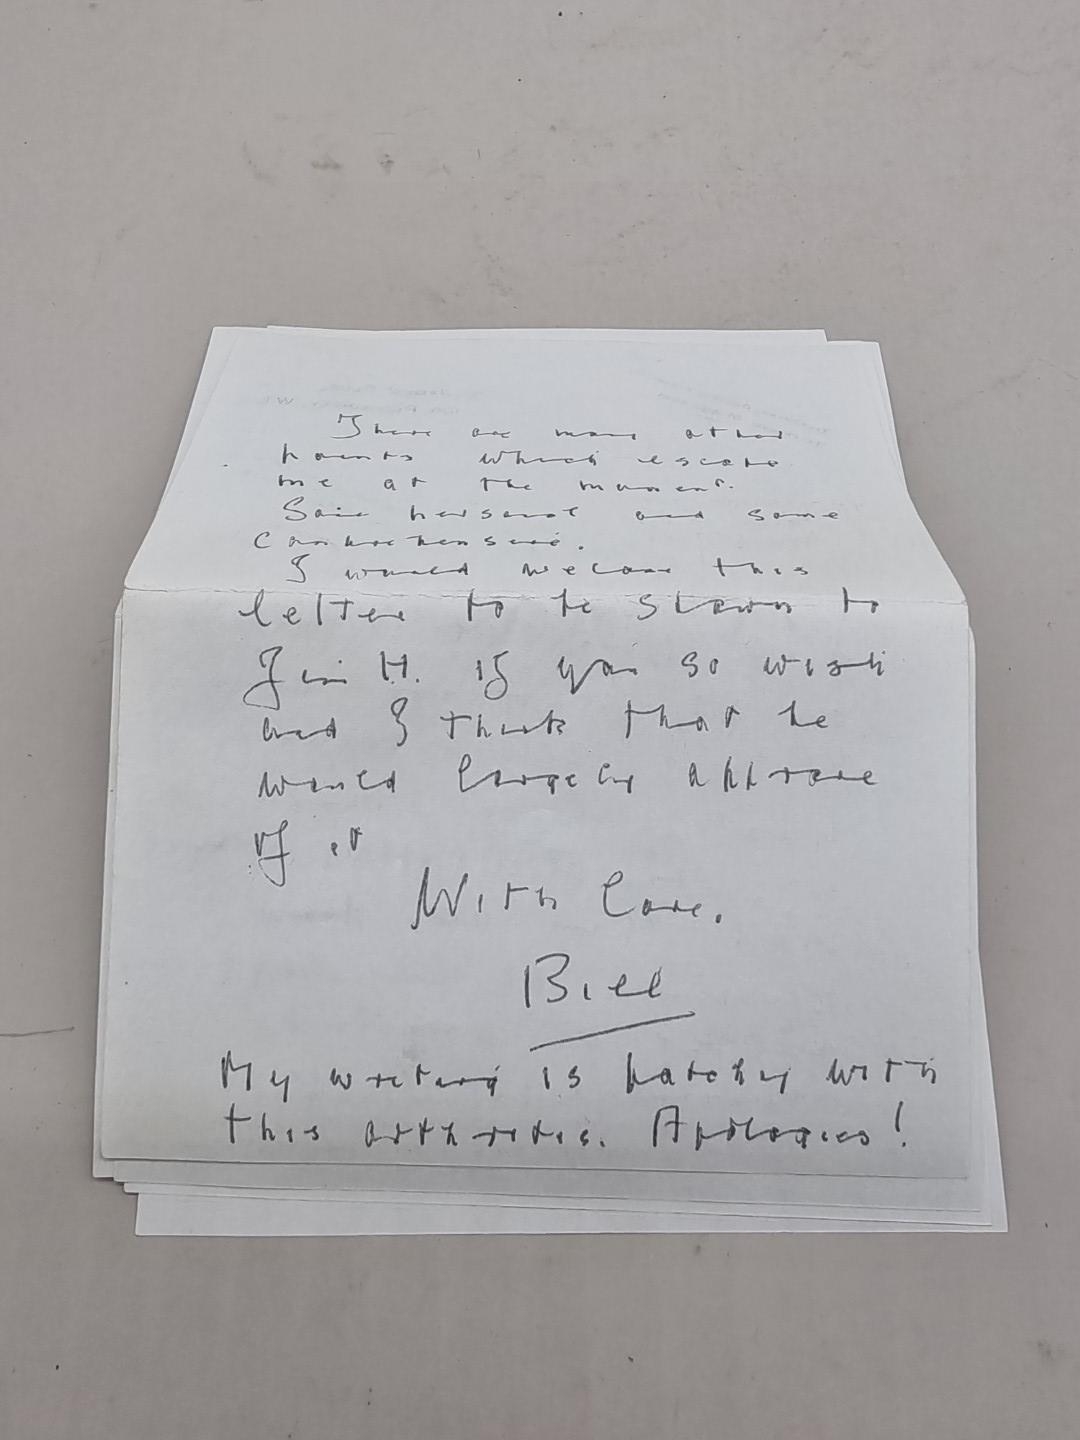 There are many other
points which escape
me at the moment.
Some personal and some
comprehensive.
I would welcome this
letter to be shown to
Jim H. if you so wish
and I think that he
would largely approve
of it
With love.
Bill
My writing is patchy with
this arthritis. Apologies!